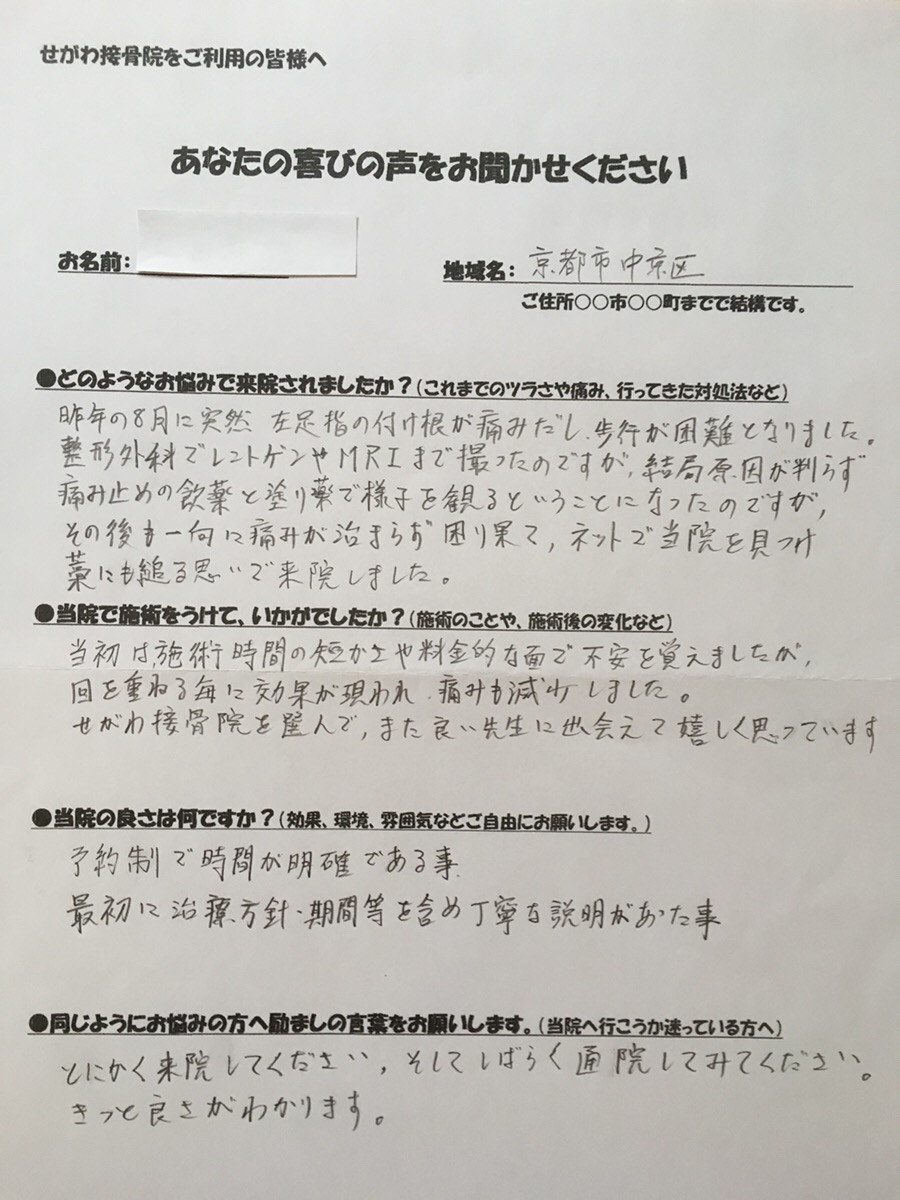 せがわ接骨院をご利用の皆様へ
あなたの喜びの声をお聞かせください
お名前:
地域名: 京都市中京区
ご住所○○市○○町までで結構です。
●どのようなお悩みで来院されましたか?(これまでのツラさや痛み、行ってきた対処法など)
昨年の8月に突然 左足指の付け根が痛みだし、歩行が困難となりました。
整形外科でレントゲンやMRIまで撮ったのですが、結局原因が判らず
痛み止めの飲薬と塗り薬で様子を観るということになったのですが、
その後も一向に痛みが治まらず困り果て、ネットで当院を見つけ
藁にも縋る思いで来院しました。
●当院で施術をうけて、いかがでしたか?(施術のことや、施術後の変化など)
当初は、施術時間の短かさや料金的な面で不安を覚えましたが、
回を重ねる毎に効果が現われ、痛みも減少しました。
せがわ接骨院を選んで、また良い先生に出会えて嬉しく思っています
●当院の良さは何ですか?(効果、環境、雰囲気などご自由にお願いします。)
予約制で時間が明確である事
最初に治療方針・期間等を含め丁寧な説明があった事
●同じようにお悩みの方へ励ましの言葉をお願いします。(当院へ行こうか迷っている方へ)
とにかく来院してください、そしてしばらく通院してみてください。
きっと良さがわかります。